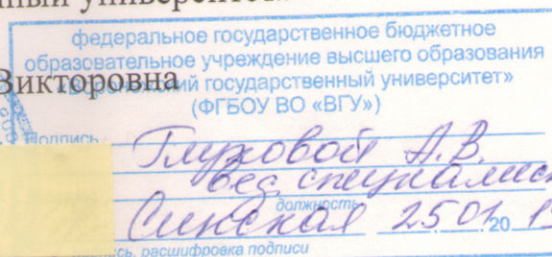 федеральное государственное бюджетное
образовательное учреждение высшего образования
Викторовна государственный университет»
(ФГБОУ ВО «ВГУ»)
Подпись Глуховой А.В.
вед. специалист
должность
Синская 25 01 20
расшифровка подписи